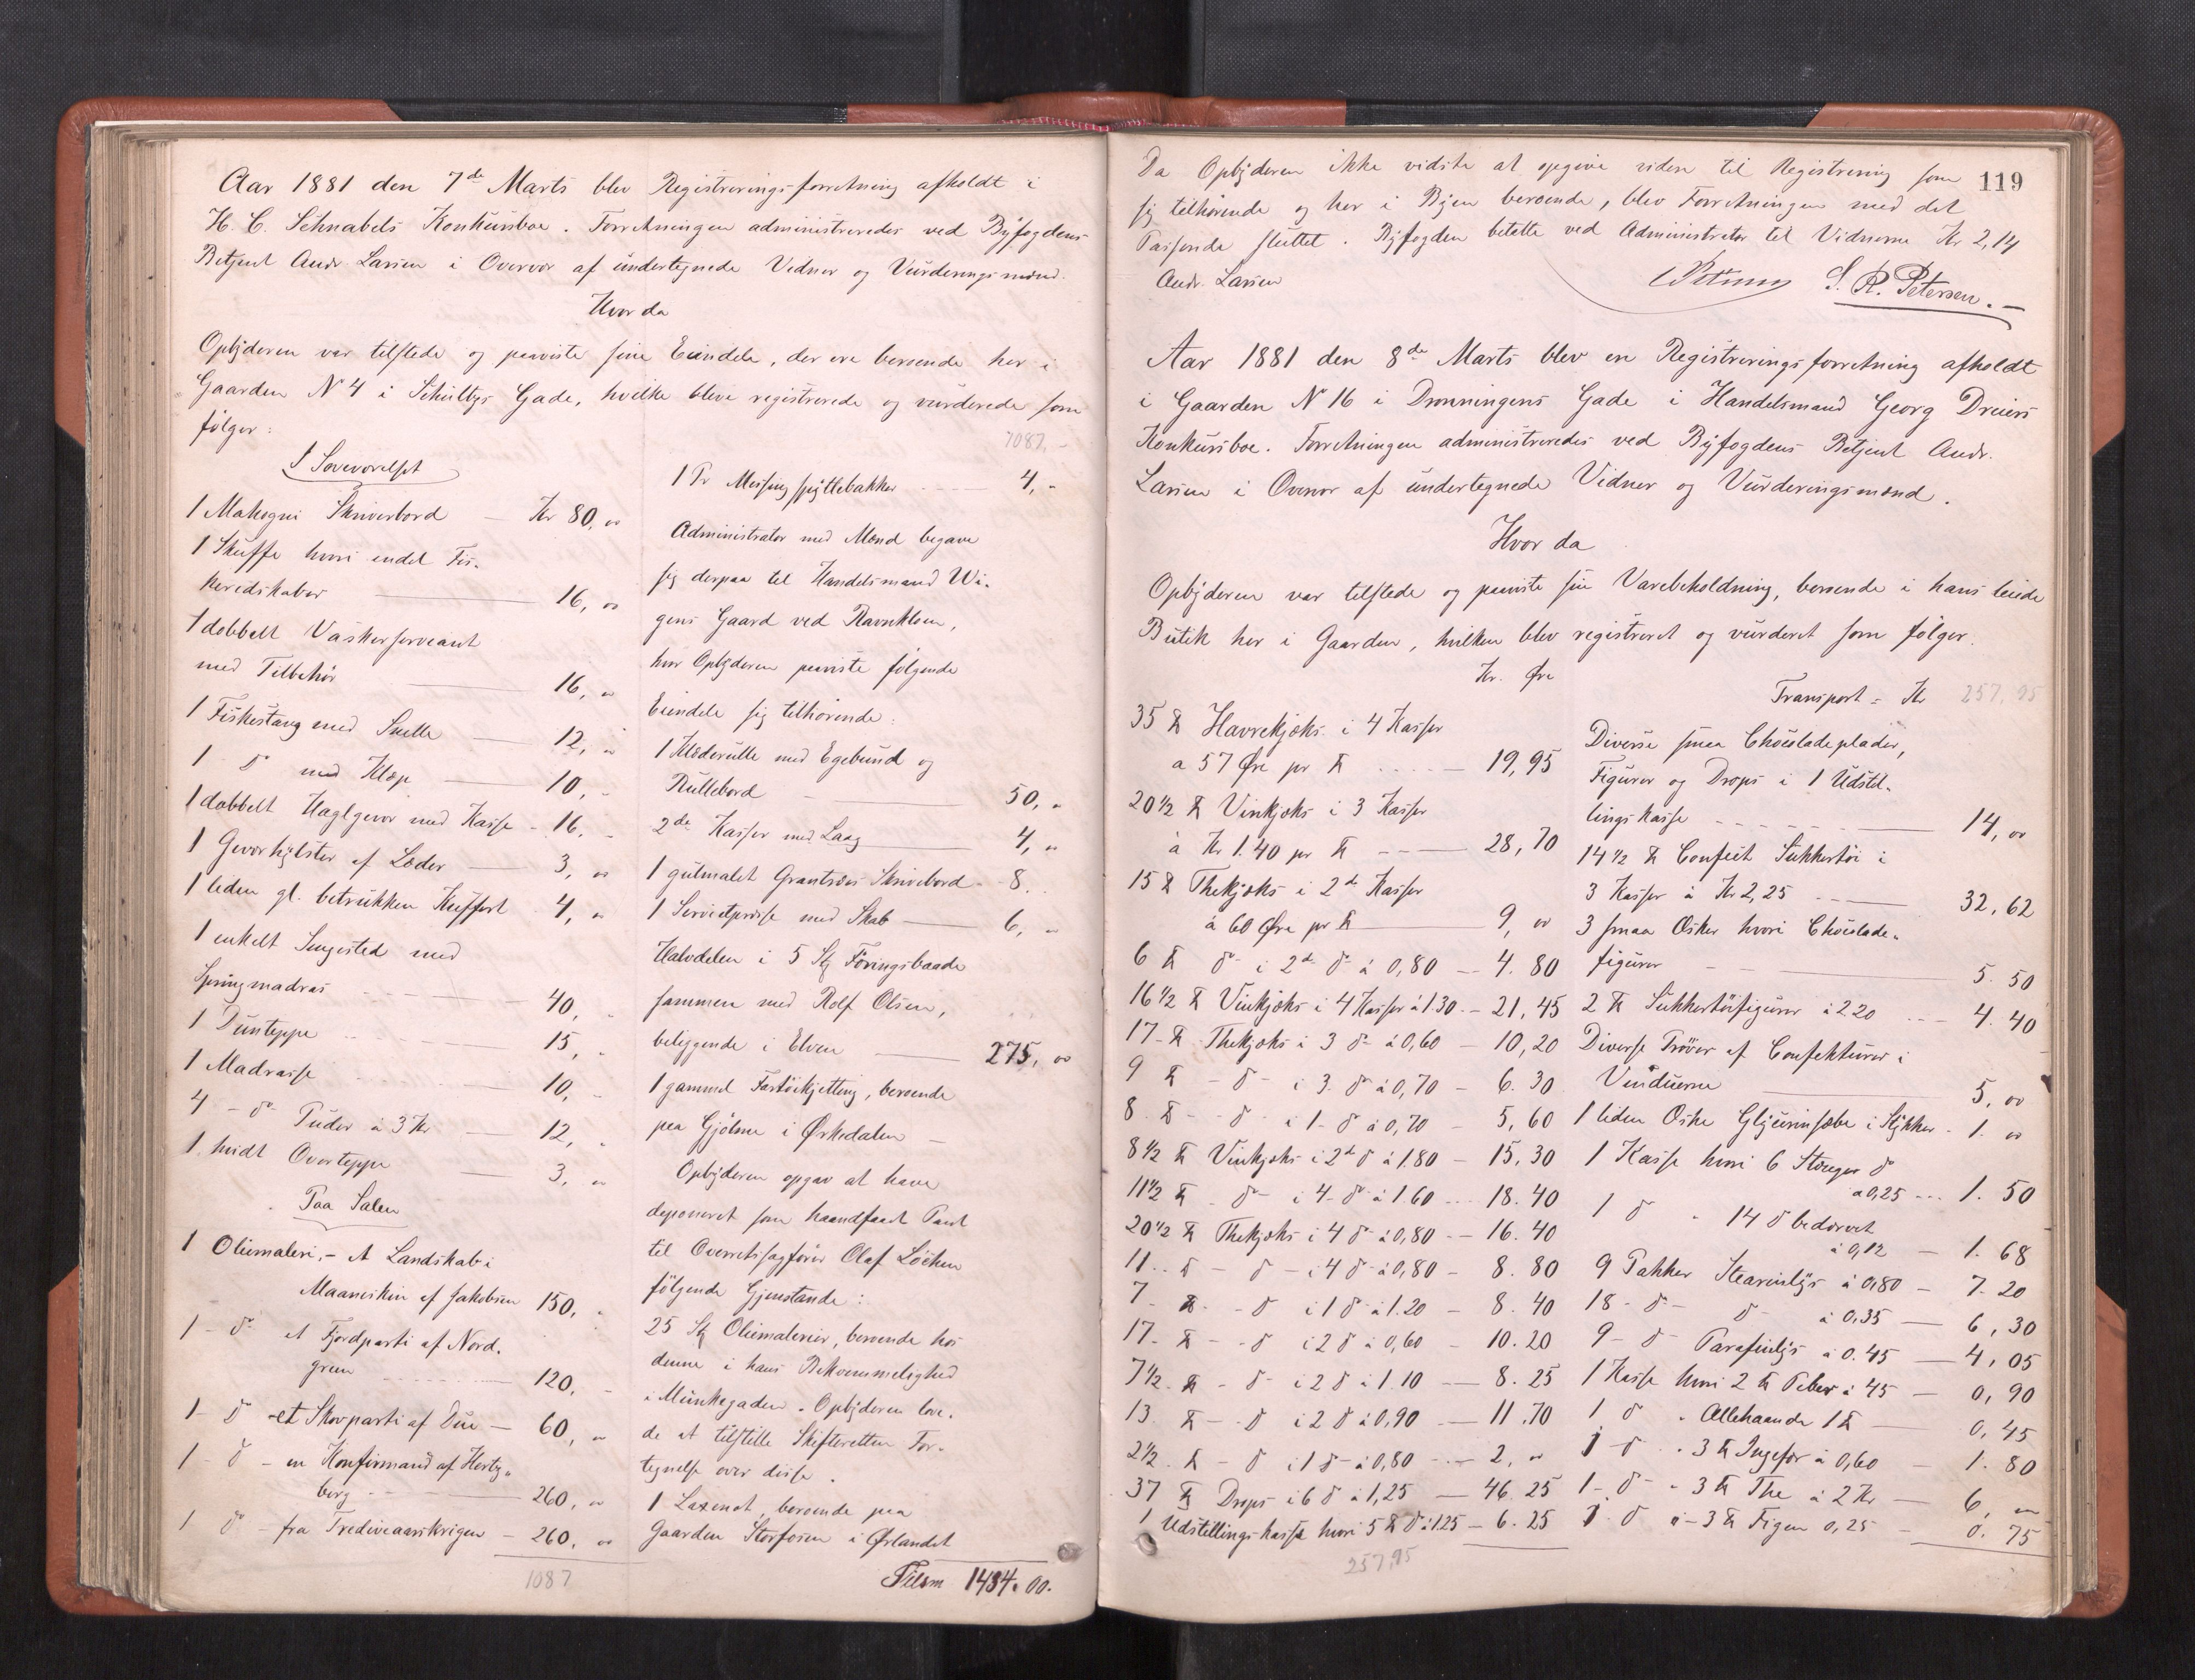 Aar 1881 den 7de Marts blev Registreringsforretning afholdt i
H. C. Schnabels Konkursboe. Forretningen administreredes ved Byfogdens
Betjent Andr. Larsen i Overvær af undertegnede Vidner og Vurderingsmænd.
Hvor da
Opbyderen var tilstede og paaviste sine Eiendele, der ere beroende her i
Gaarden N 4 i Schultzs Gade, hvilke bleve registrerede og vurderede som
følger:
I Soveværelset
1 Mahogni Skriverbord — Kr 80, oo
1 Skuffe hvori endel Fis-
keredskaber — 16, oo
1 dobbelt Vaskerservant
med Tilbehør — 16, "
1 Fiskestang med Snelle — 12, "
1 do med Klep — 10, -
1 dobbelt Haglgevær med Kasse - 16. -
1 Geværhylster af Læder — 3, oo
1 liden gl. betrukken Kuffert - 4, "
1 enkelt Sengested med
Springmadras — 40, -
1 Dunteppe — 15, -
1 Madrasse — 10, -
4 - do Puder à 3 Kr — 12, -
1 hvidt Overteppe — 3, "
Paa Salen
1 Oliemaleri, - et Landskab i
Maaneskin af Jakobsen 150, -
1 - do et Fjordparti af Nord-
gren — 120, -
1 - do - et Skovparti af Due — 60, "
1 - do - en Konfirmand af Hertz-
berg — 260, "
1 do - fra Trediveaarskrigen — 260, oo
1087
7087. -
1 Pr Messingspyttebakker — 4, -
Administrator med Mænd begave
sig derpaa til Handelsmand Wi-
gens Gaard ved Ravnkloen,
hvor Opbyderen paaviste følgende
Eiendele sig tilhørende:
1 Klæderulle med Egebund og
Rullebord — 50, "
2de Kasser med Laag — 4, "
1 gulmalet Grantræes Skrivebord - 8. .
1 Servietpresse med Skab — 6, "
Halvdelen i 5 Stk Føringsbaade
sammen med Rolf Olsen,
beliggende i Elven — 275, oo
1 gammel Fartøikjetting, beroende
paa Gjølme i Ørkedalen —
Opbyderen opgav at have
deponeret som haandfaaet Pant
til Overretssagfører Olaf Löchen
følgende Gjenstande:
25 Stk Oliemalerier, beroende hos
denne i hans Bekvemmelighed
i Munkegaden. Opbyderen love-
de at tilstille Skifteretten For-
tegnelse over disse.
1 Lazenet, beroende paa
Gaarden Storfosen i Ørlandet
Tilsm 1434. 00.
119
Da Opbyderen ikke vidste at opgive videre til Registrering som
sig tilhørende og her i Byen beroende, blev Forretningen med det
Passerede sluttet. Byfogden betalte ved Administrator til Vidnerne Kr 2,14
Andr. Larsen
S. R. Petersen. —
Aar 1881 den 8de Marts blev en Registreringsforretning afholdt
i Gaarden N 16 i Dronningens Gade i Handelsmand Georg Dreiers
Konkursboe. Forretningen administreredes ved Byfogdens Betjent Andr.
Larsen i Overvær af undertegnede Vidner og Vurderingsmænd.
Hvor da
Opbyderen var tilstede og paaviste sin Varebeholdning, beroende i hans leiede
Butik her i Gaarden, hvilken blev registreret og vurderet som følger.
Kr. Øre
35 ℔ Havrekjæks i 4 Kasser
a 57 Øre pr ℔ — 19,95
20 1/2 ℔ Vinkjæks i 3 Kasser
à Kr 1.40 pr ℔ — 28,70
15 ℔ Thekjæks i 2de Kasser
à 60 Øre pr ℔ — 9, oo
6 ℔ do i 2de do à 0,80 — 4. 80
16 1/2 ℔ Vinkjæks i 4 Kasser à 1.30 - 21,45
17 - ℔ Thekjæks i 3 do à 0,60 - 10,20
9 ℔ - do - i 3. do à 0,70 - 6. 30
8 ℔ - do - i 1 - do à 0,70 - 5,60
8 1/2 ℔ Vinkjæks i 2de do à 1.80 - 15,30
11 1/2 ℔ - do - i 4 - do à 1.60 — 18. 40
20 1/2 ℔ Thekjæks i 4 do à 0,80 — 16. 40
11 .. ℔ - do - i 4 do à 0,80 - 8. 80
7 - ℔ - do i 1 do à 1.20 - 8. 40
17 - ℔ - do i 2 do à 0,60 - 10.20
7 1/2 - ℔ - do - i 2 do à 1.10 — 8. 25
13 ℔ - do i 2 do à 0,90 — 11.70
2 1/2 ℔ - do i 1 do - à 0,80 — 2, "
37 ℔ Drops i 6 do à 1,25 — 46. 25
1 Udstillingskasse hvori 5 ℔ do à 1.25 - 6. 25
257,95
Transport = Kr 257,95
Diverse smaa Chocoladeplader,
Figurer og Drops i 1 Udstil-
lingskasse — 14, oo
14 1/2 ℔ Confect Sukkertøi i
3 Kasser à Kr 2,25 — 32,62
3 smaa Æsker hvori Chocolade-
figurer — 5. 50
2 ℔ Sukkertøifigurer à 2.20 — 4. 40
Diverse Prøver af Confekturer i
Vinduerne — 5, oo
1 liden Æske Glycerinsæbe i Stykker - 1. oo
1 Kasse hvori 6 Stænger do
à 0,25 — 1. 50
1 do - 14 do bedærvet
à 0,12 — 1. 68
9 Pakker Stearinlys à 0,80 — 7. 20
18 - do - do - à 0,35 — 6,30
9 - do - Parafinlys à 0.45 — 4,05
1 Kasse hvori 2 ℔ Peber à 45 — 0,90
1 do " Allehaande 1 ℔ — 0,45
1 - do - " 3 ℔ Ingefær à 0,60 — 1. 80
1 - do - " 3 ℔ The à 2 Kr — 6, "
1 - do " - 3 ℔ Figen 0,25 — 0. 75